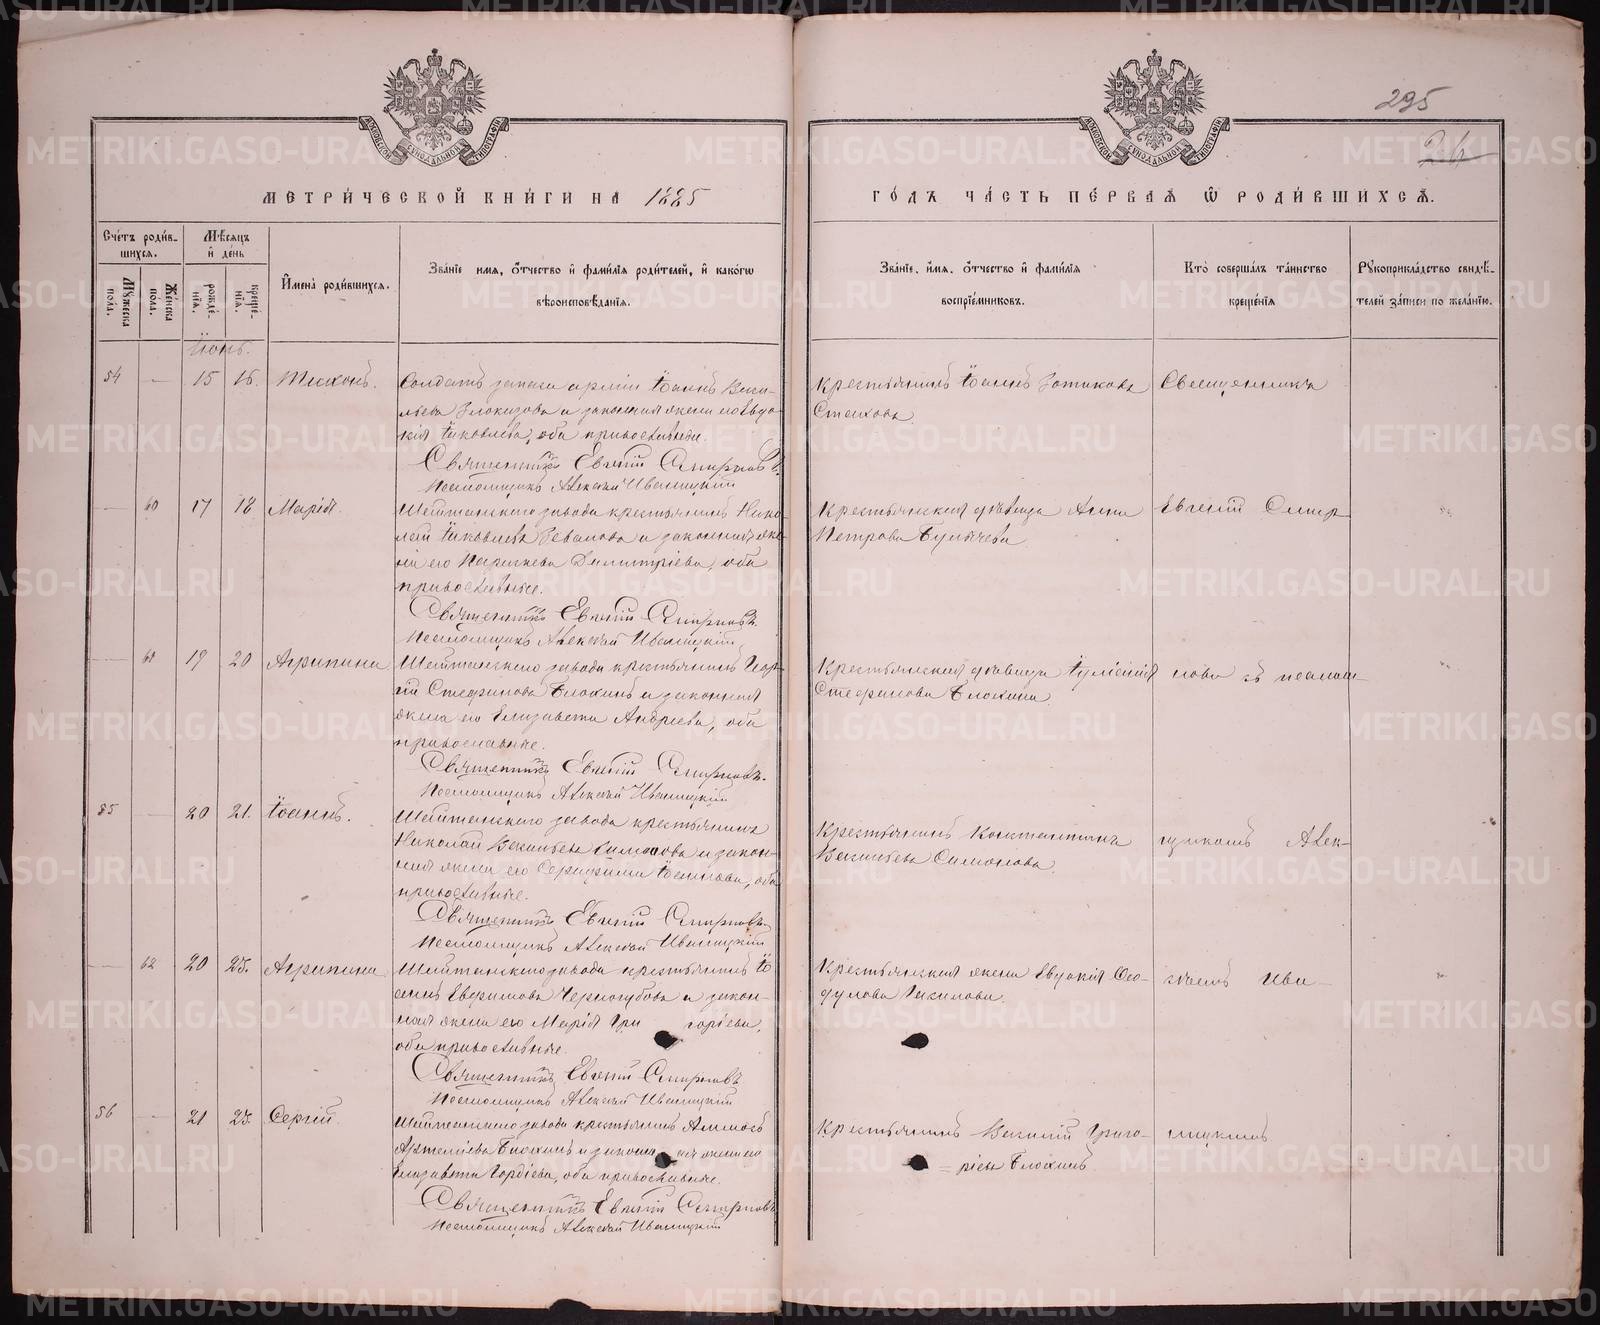 295
26
МЕТРИ́ЧЕСКОЙ КНИ́ГИ НА 1885
ГО́ДЪ ЧА́СТЬ ПЕ́РВАЯ Ѡ РОДИ́ВШИХСЯ.
Сче́тъ роди́в-
шихся.
Мѣ́сяцъ
и̂ де́нь
Мꙋжеска
пола.
Же́нска
пола.
рожде́-
нїя.
креще́-
нїя.
И̂мена̀ роди́вшихся.
Зва́нїе имя, о́тчество и̂ фами́лїя роди́телей, и̂ како́гѡ
вѣроисповѣ́данїя.
Зва́нїе, и́мя, о́тчество и̂ фами́лїя
воспрїе́мниковъ.
Кто̀ соверша́лъ та́инство
креще́нїя
Рꙋкоприкла́дство свидѣ́-
телей за́писи по жела́нїю.
Іюнь.
54 — 15 16. Тихонъ.
Солдатъ запаса арміи Іоаннъ Васи-
льевъ и законная жена
Іаковлева, оба православные.
Священникъ Евгеній Смирновъ
Псаломщикъ Алексѣй Иваницкій
Крестьянинъ Іоаннъ
Священникъ
— 60 17 18 Марія.
Шайтанскаго завода крестьянинъ Нико-
лай Іаковлевъ и законная же-
на его Параскева Димитріева, оба
православные.
Священникъ Евгеній Смирновъ.
Псаломщикъ Алексѣй Иваницкій
Крестьянская дѣвица Анна
Петрова
Евгеній Смир-
— 61 19 20 Агрипина
Шайтанскаго завода крестьянинъ Геор-
гій Стефановъ Блохинъ и законная
жена его Елизавета Андреева, оба
православные.
Священникъ Евгеній Смирновъ.
Псаломщикъ Алексѣй Иваницкій
Крестьянская дѣвица Іулианія
Стефанова Блохина.
новъ съ псалом-
55 — 20 21. Іоаннъ.
Шайтанскаго завода крестьянинъ
Николай Васильевъ Симонова и закон-
ная жена его Серафима оба
православные.
Священникъ Евгеній Смирновъ
Псаломщикъ Алексѣй Иваницкій
Крестьянинъ Константинъ
Васильевъ Симонова.
щикомъ Алек-
— 62 20 25. Агрипина
Шайтанскаго завода крестьянинъ Іо-
аннъ Евфимова Черногубова и закон-
ная жена его Марія Григоріева,
оба православные.
Священникъ Евгеній Смирновъ
Псаломщикъ Алексѣй Иваницкій
Крестьянская жена Евдокія Ѳео-
дулова
сѣемъ Ива-
56 — 21 25. Сергій.
Шайтанскаго завода крестьянинъ
Артеміева Блохинъ и законная жена его
Елизавета Гордіева, оба православные.
Священникъ Евгеній Смирновъ
Псаломщикъ Алексѣй Иваницкій
Крестьянинъ Василій Григо-
= рьевъ Блохинъ
ницкимъ
METRIKI.GASO-URAL.RU